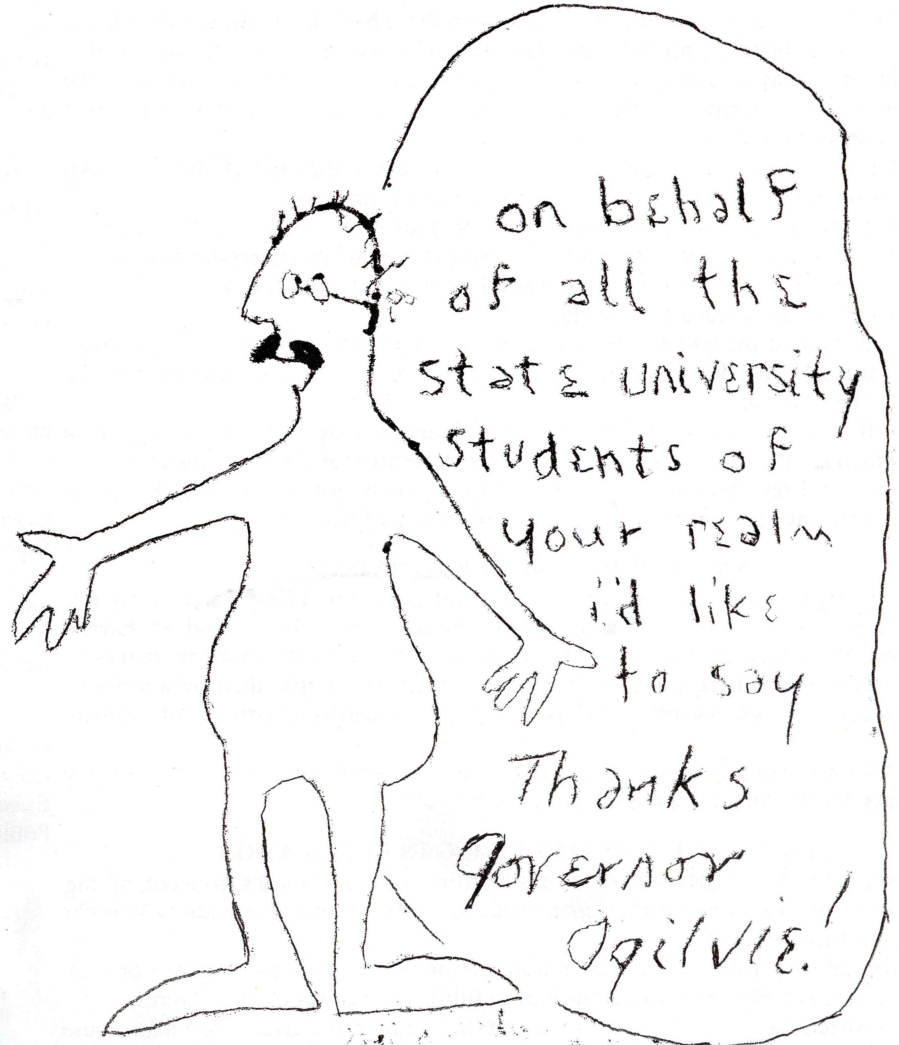 on behalf
of all the
state university
students of
your realm
i'd like
to say
Thanks
Governor
Ogilvie!